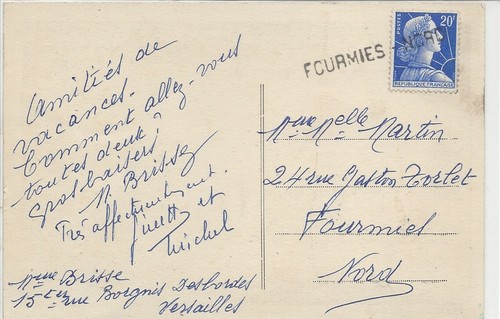 Amitiés de
vacances.
Comment allez-vous
toutes deux?
Gros baisers!
N. Brisse
Très affectueusement.
Ginette et
Michel
Mme Brisse
15 ter rue Borgnis Desbordes
Versailles
FOURMIES NORD
POSTES
20F
REPUBLIQUE FRANÇAISE
Mme Melle Martin
24 rue Gaston Torlet
Fourmies
Nord